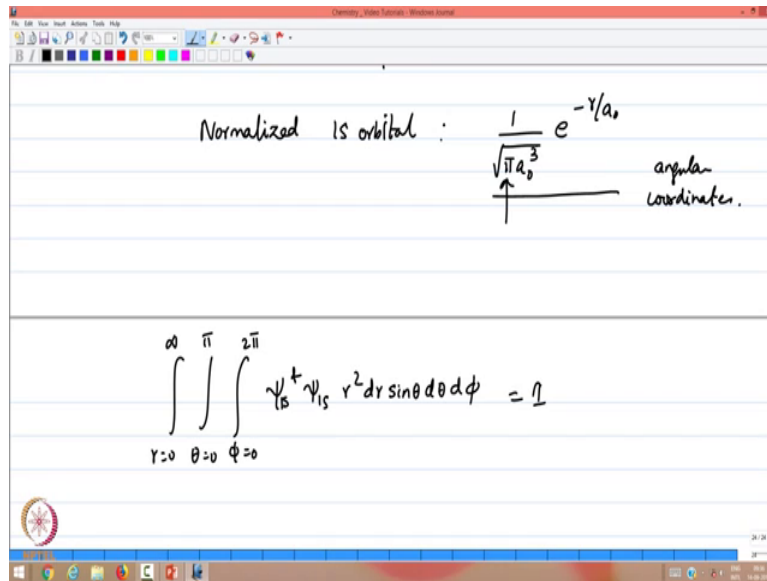 Chemistry_Video Tutorials - Windows Journal
File Edit View Insert Actions Tools Help
B I
Normalized 1s orbital : 1/√(πa₀³) e^(-r/a₀)
angular
coordinates.
∫_{r=0}^{∞} ∫_{θ=0}^{π} ∫_{φ=0}^{2π} ψ₁ₛ* ψ₁ₛ r² dr sinθ dθ dφ = 1
NPTEL
24 / 24